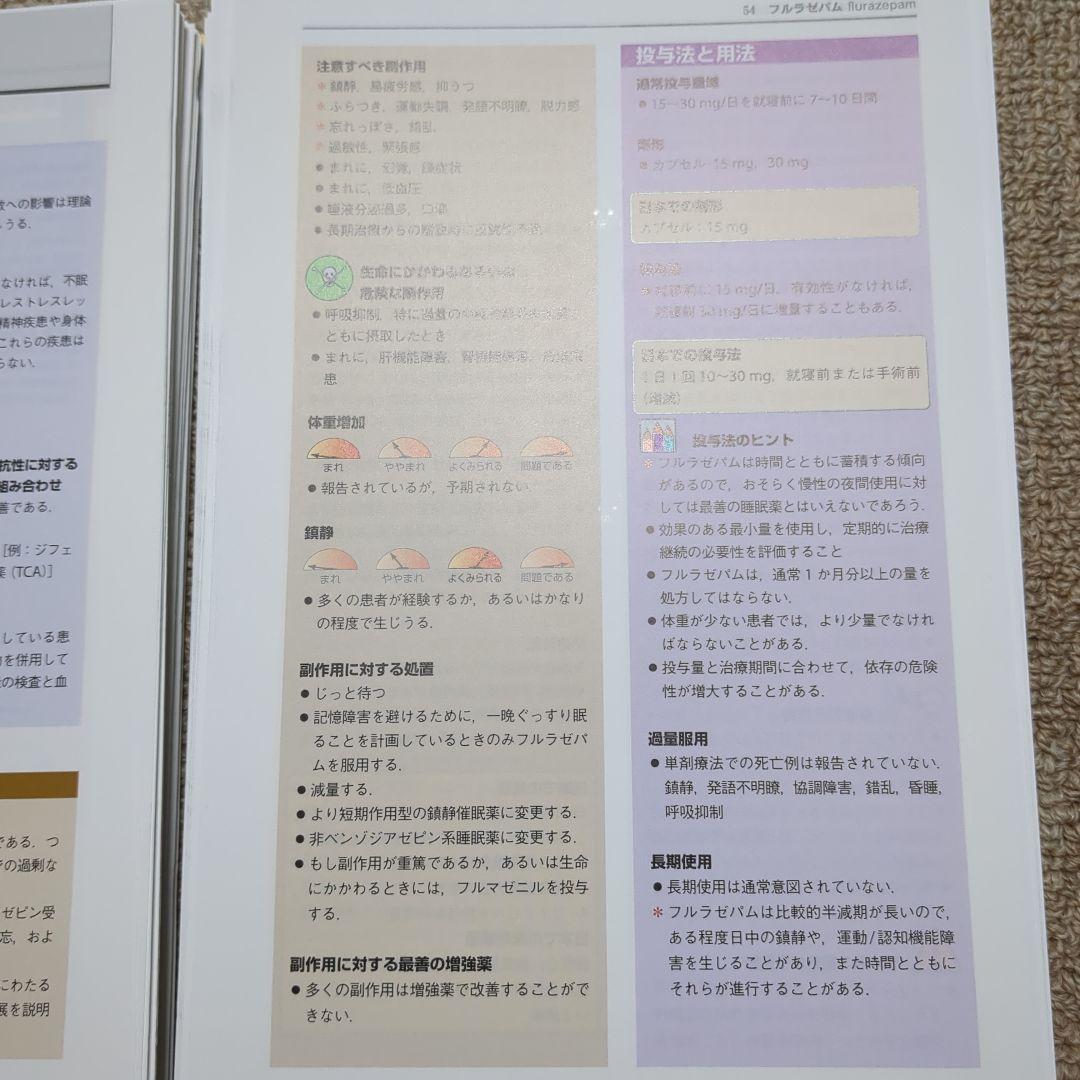 数への影響は理論
うる．
なければ，不眠
レストレスレッ
精神疾患や身体
これらの疾患は
らない．
抗性に対する
組み合わせ
善である．
［例：ジフェ
薬 (TCA)］
している患
物を併用して
の検査と血
である．つ
での過剰な
ゼピン受
忘，およ
にわたる
展を説明
54 フルラゼパム flurazepam
注意すべき副作用
＊鎮静，易疲労感，抑うつ
＊ふらつき，運動失調，発語不明瞭，脱力感
＊忘れっぽさ，錯乱
＊過敏性，緊張感
● まれに，幻覚，躁症状
● まれに，低血圧
● 唾液分泌過多，口渇
● 長期治療からの
生命にかかわる
危険な副作用
● 呼吸抑制，特に過量の
ともに摂取したとき
● まれに，肝機能障害，
患
体重増加
まれ ややまれ よくみられる 問題である
● 報告されているが，予期されない
鎮静
まれ ややまれ よくみられる 問題である
● 多くの患者が経験するか，あるいはかなり
の程度で生じうる．
副作用に対する処置
● じっと待つ
● 記憶障害を避けるために，一晩ぐっすり眠
ることを計画しているときのみフルラゼパ
ムを服用する．
● 減量する．
● より短期作用型の鎮静催眠薬に変更する．
● 非ベンゾジアゼピン系睡眠薬に変更する．
● もし副作用が重篤であるか，あるいは生命
にかかわるときには，フルマゼニルを投与
する．
副作用に対する最善の増強薬
● 多くの副作用は増強薬で改善することがで
きない．
投与法と用法
通常投与量域
● 15〜30 mg/日を就寝前に 7〜10 日間
剤形
● カプセル 15 mg，30 mg
日本での剤形
カプセル：15 mg
投与法
＊就寝前に 15 mg/日，有効性がなければ，
就寝前 30 mg/日に増量することもある．
日本での投与法
1 日 1 回 10〜30 mg，就寝前または手術前
投与法のヒント
＊フルラゼパムは時間とともに蓄積する傾向
があるので，おそらく慢性の夜間使用に対
しては最善の睡眠薬とはいえないであろう．
● 効果のある最小量を使用し，定期的に治療
継続の必要性を評価すること
● フルラゼパムは，通常 1 か月分以上の量を
処方してはならない．
● 体重が少ない患者では，より少量でなけれ
ばならないことがある．
● 投与量と治療期間に合わせて，依存の危険
性が増大することがある．
過量服用
● 単剤療法での死亡例は報告されていない．
鎮静，発語不明瞭，協調障害，錯乱，昏睡，
呼吸抑制
長期使用
● 長期使用は通常意図されていない．
＊フルラゼパムは比較的半減期が長いので，
ある程度日中の鎮静や，運動/認知機能障
害を生じることがあり，また時間とともに
それらが進行することがある．